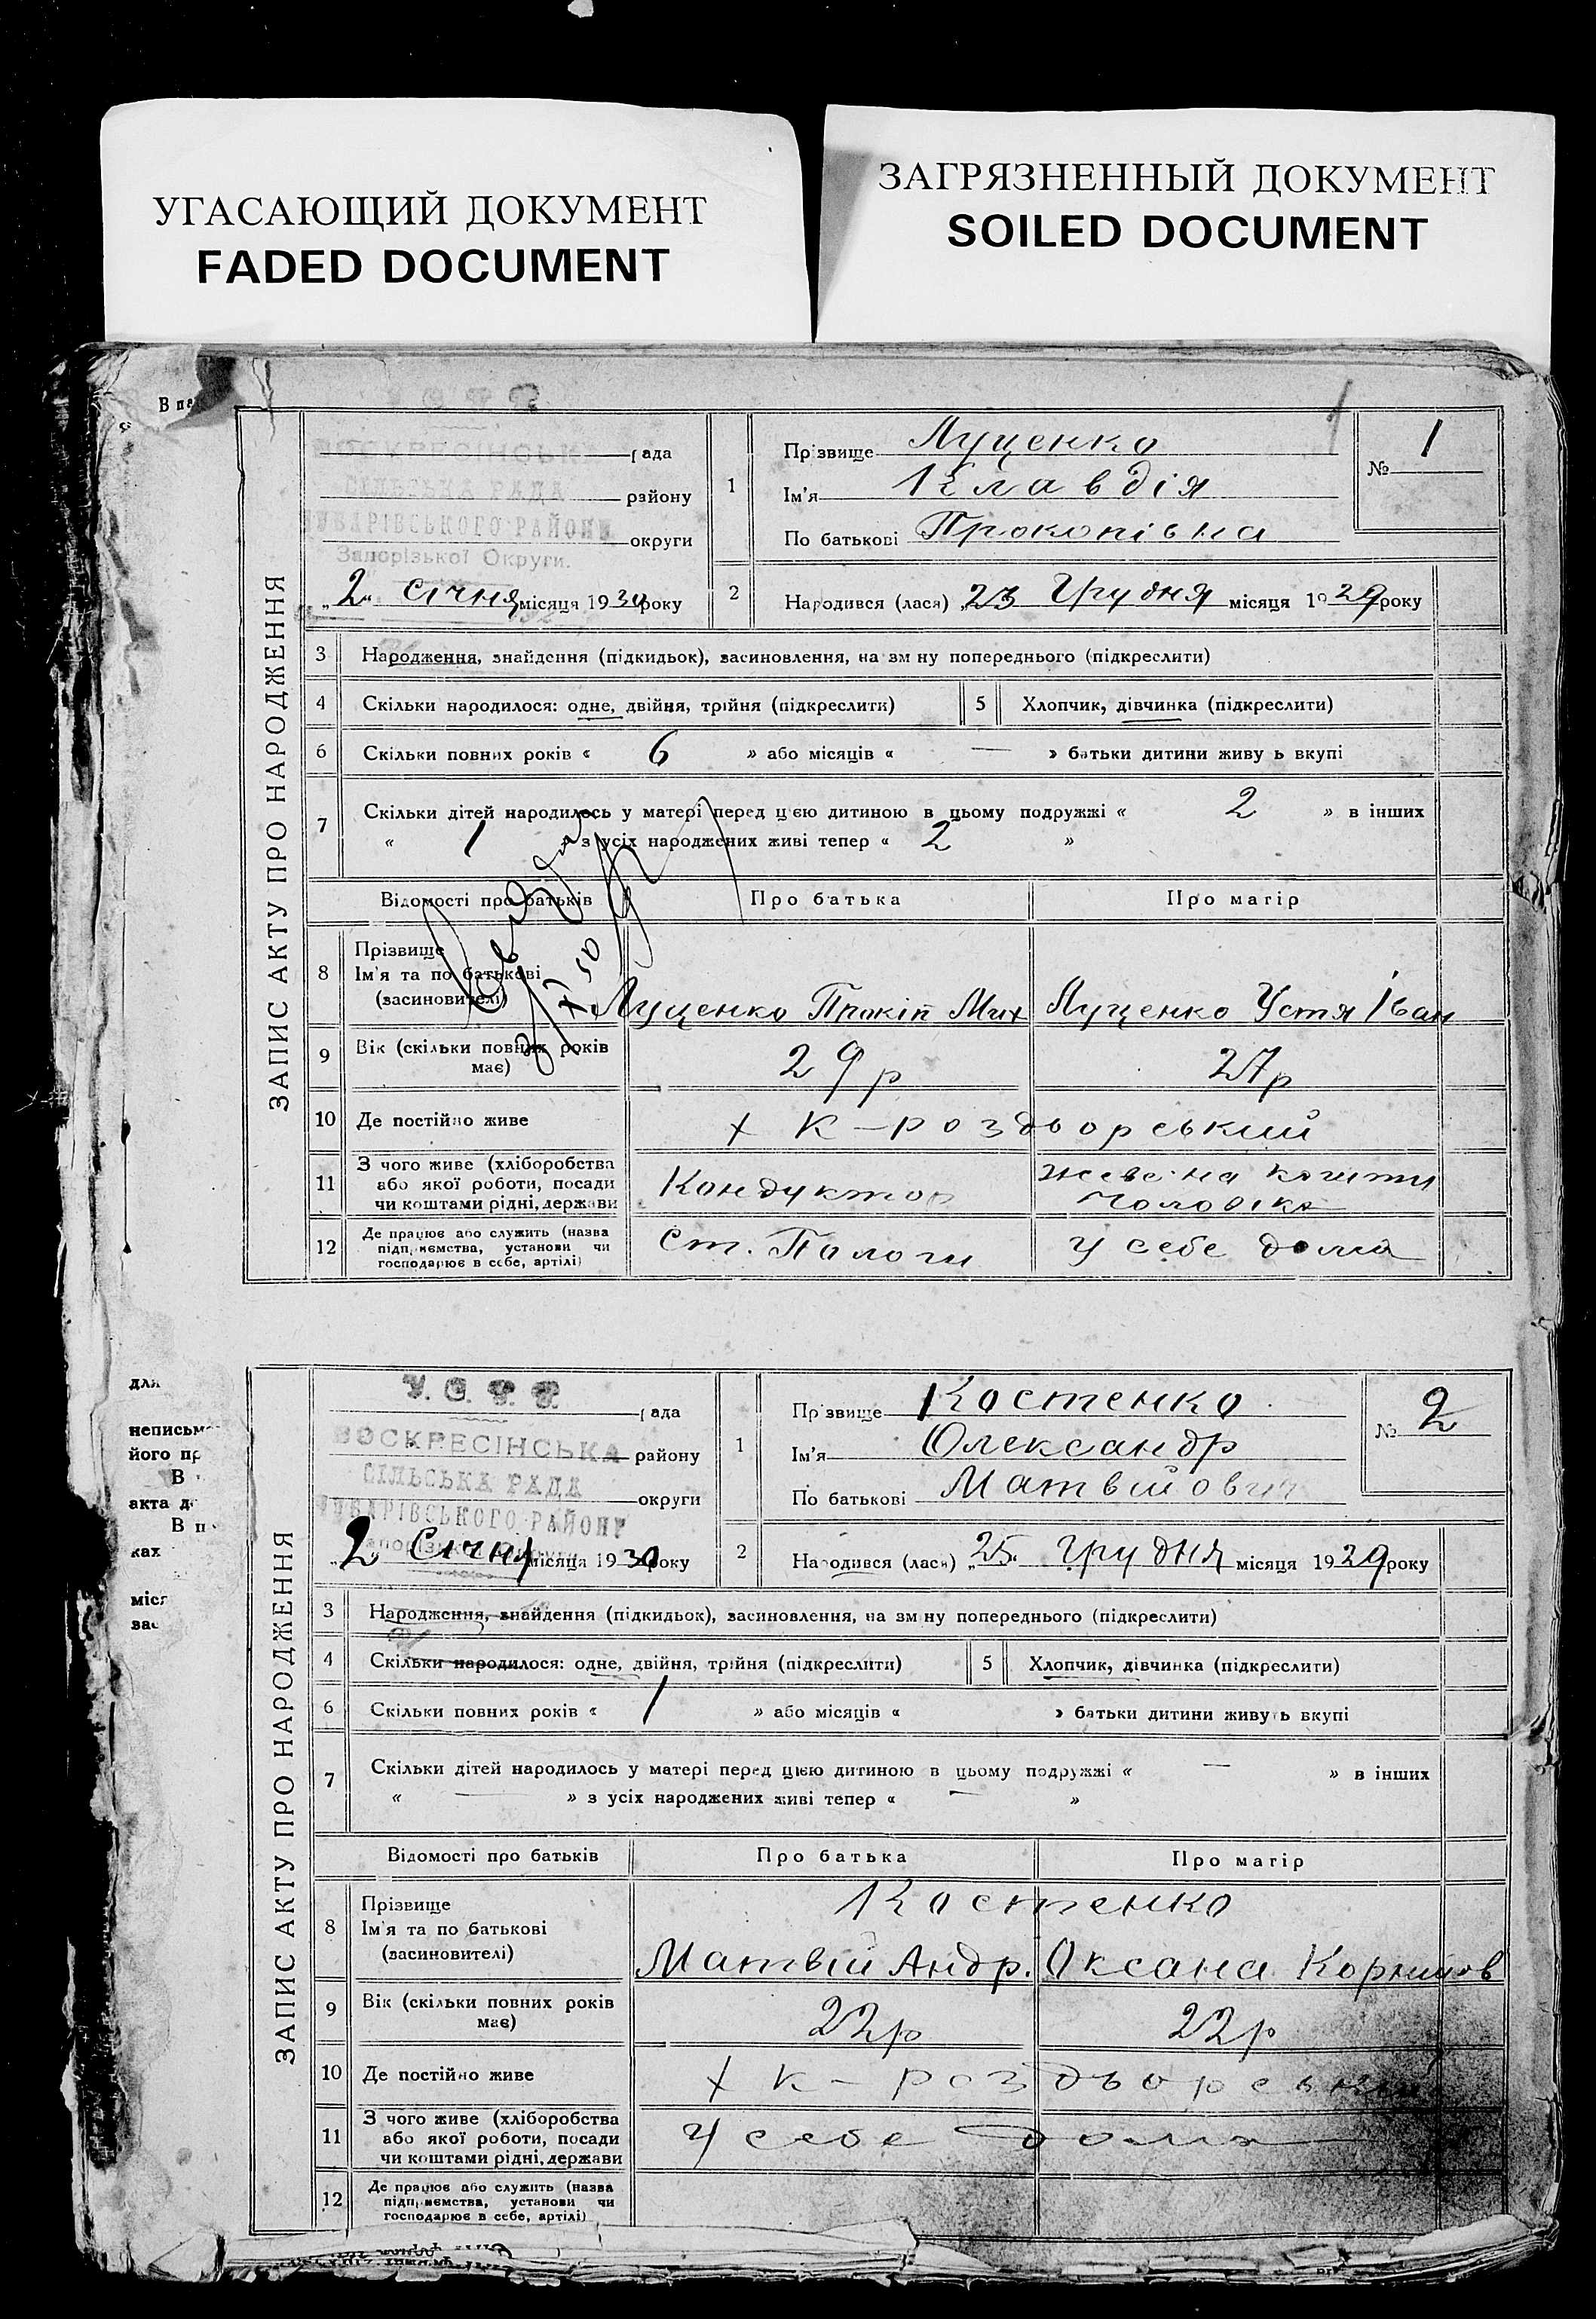 УГАСАЮЩИЙ ДОКУМЕНТ
FADED DOCUMENT
ЗАГРЯЗНЕННЫЙ ДОКУМЕНТ
SOILED DOCUMENT
ЗАПИС АКТУ ПРО НАРОДЖЕННЯ
ВОСКРЕСІНСЬКА рада
СІЛЬСЬКА РАДА району
ЧУБАРІВСЬКОГО РАЙОНУ округи
Запорізької Округи.
„2“ Січня місяця 1930 року
1 Прізвище Луценко
Ім'я Клавдія
По батькові Прокопівна
№ 1
2 Народився (лася) „23 Грудня місяця 1929 року
3 Народження, знайдення (підкидьок), засиновлення, на зміну попереднього (підкреслити)
4 Скільки народилося: одне, двійня, трійня (підкреслити) 5 Хлопчик, дівчинка (підкреслити)
6 Скільки повних років « 6 » або місяців « — » батьки дитини живуть вкупі
7 Скільки дітей народилось у матері перед цією дитиною в цьому подружжі « 2 » в інших
« 1 » з усіх народжених живі тепер « 2 »
Відомості про батьків Про батька Про матір
8 Прізвище
Ім'я та по батькові
(засиновителі) Луценко Прокіп Мих Луценко Устя Іван
9 Вік (скільки повних років має) 29 р 27 р
10 Де постійно живе х К-роздорський
11 З чого живе (хліборобства
або якої роботи, посади
чи коштами рідні, держави Кондуктор живе на кошти чоловіка
12 Де працює або служить (назва
підприємства, установи чи
господарює в себе, артілі) Ст. Пологи у себе дома
ЗАПИС АКТУ ПРО НАРОДЖЕННЯ
У.С.Р.Р. рада
ВОСКРЕСІНСЬКА району
СІЛЬСЬКА РАДА округи
ЧУБАРІВСЬКОГО РАЙОНУ
„2 Січня місяця 1930 року
1 Прізвище Костенко
Ім'я Олександр
По батькові Матвійович
№ 2
2 Народився (лася) „25. Грудня місяця 1929 року
3 Народження, знайдення (підкидьок), засиновлення, на зміну попереднього (підкреслити)
4 Скільки народилося: одне, двійня, трійня (підкреслити) 5 Хлопчик, дівчинка (підкреслити)
6 Скільки повних років « 1 » або місяців « » батьки дитини живуть вкупі
7 Скільки дітей народилось у матері перед цією дитиною в цьому подружжі « — » в інших
« — » з усіх народжених живі тепер « — »
Відомості про батьків Про батька Про матір
8 Прізвище Костенко
Ім'я та по батькові
(засиновителі) Матвій Андр. Оксана Корнійов
9 Вік (скільки повних років має) 22 р 22 р
10 Де постійно живе х К-роздьорський
11 З чого живе (хліборобства
або якої роботи, посади
чи коштами рідні, держави у себе дома
12 Де працює або служить (назва
підприємства, установи чи
господарює в себе, артілі)
для
його
акта
ках